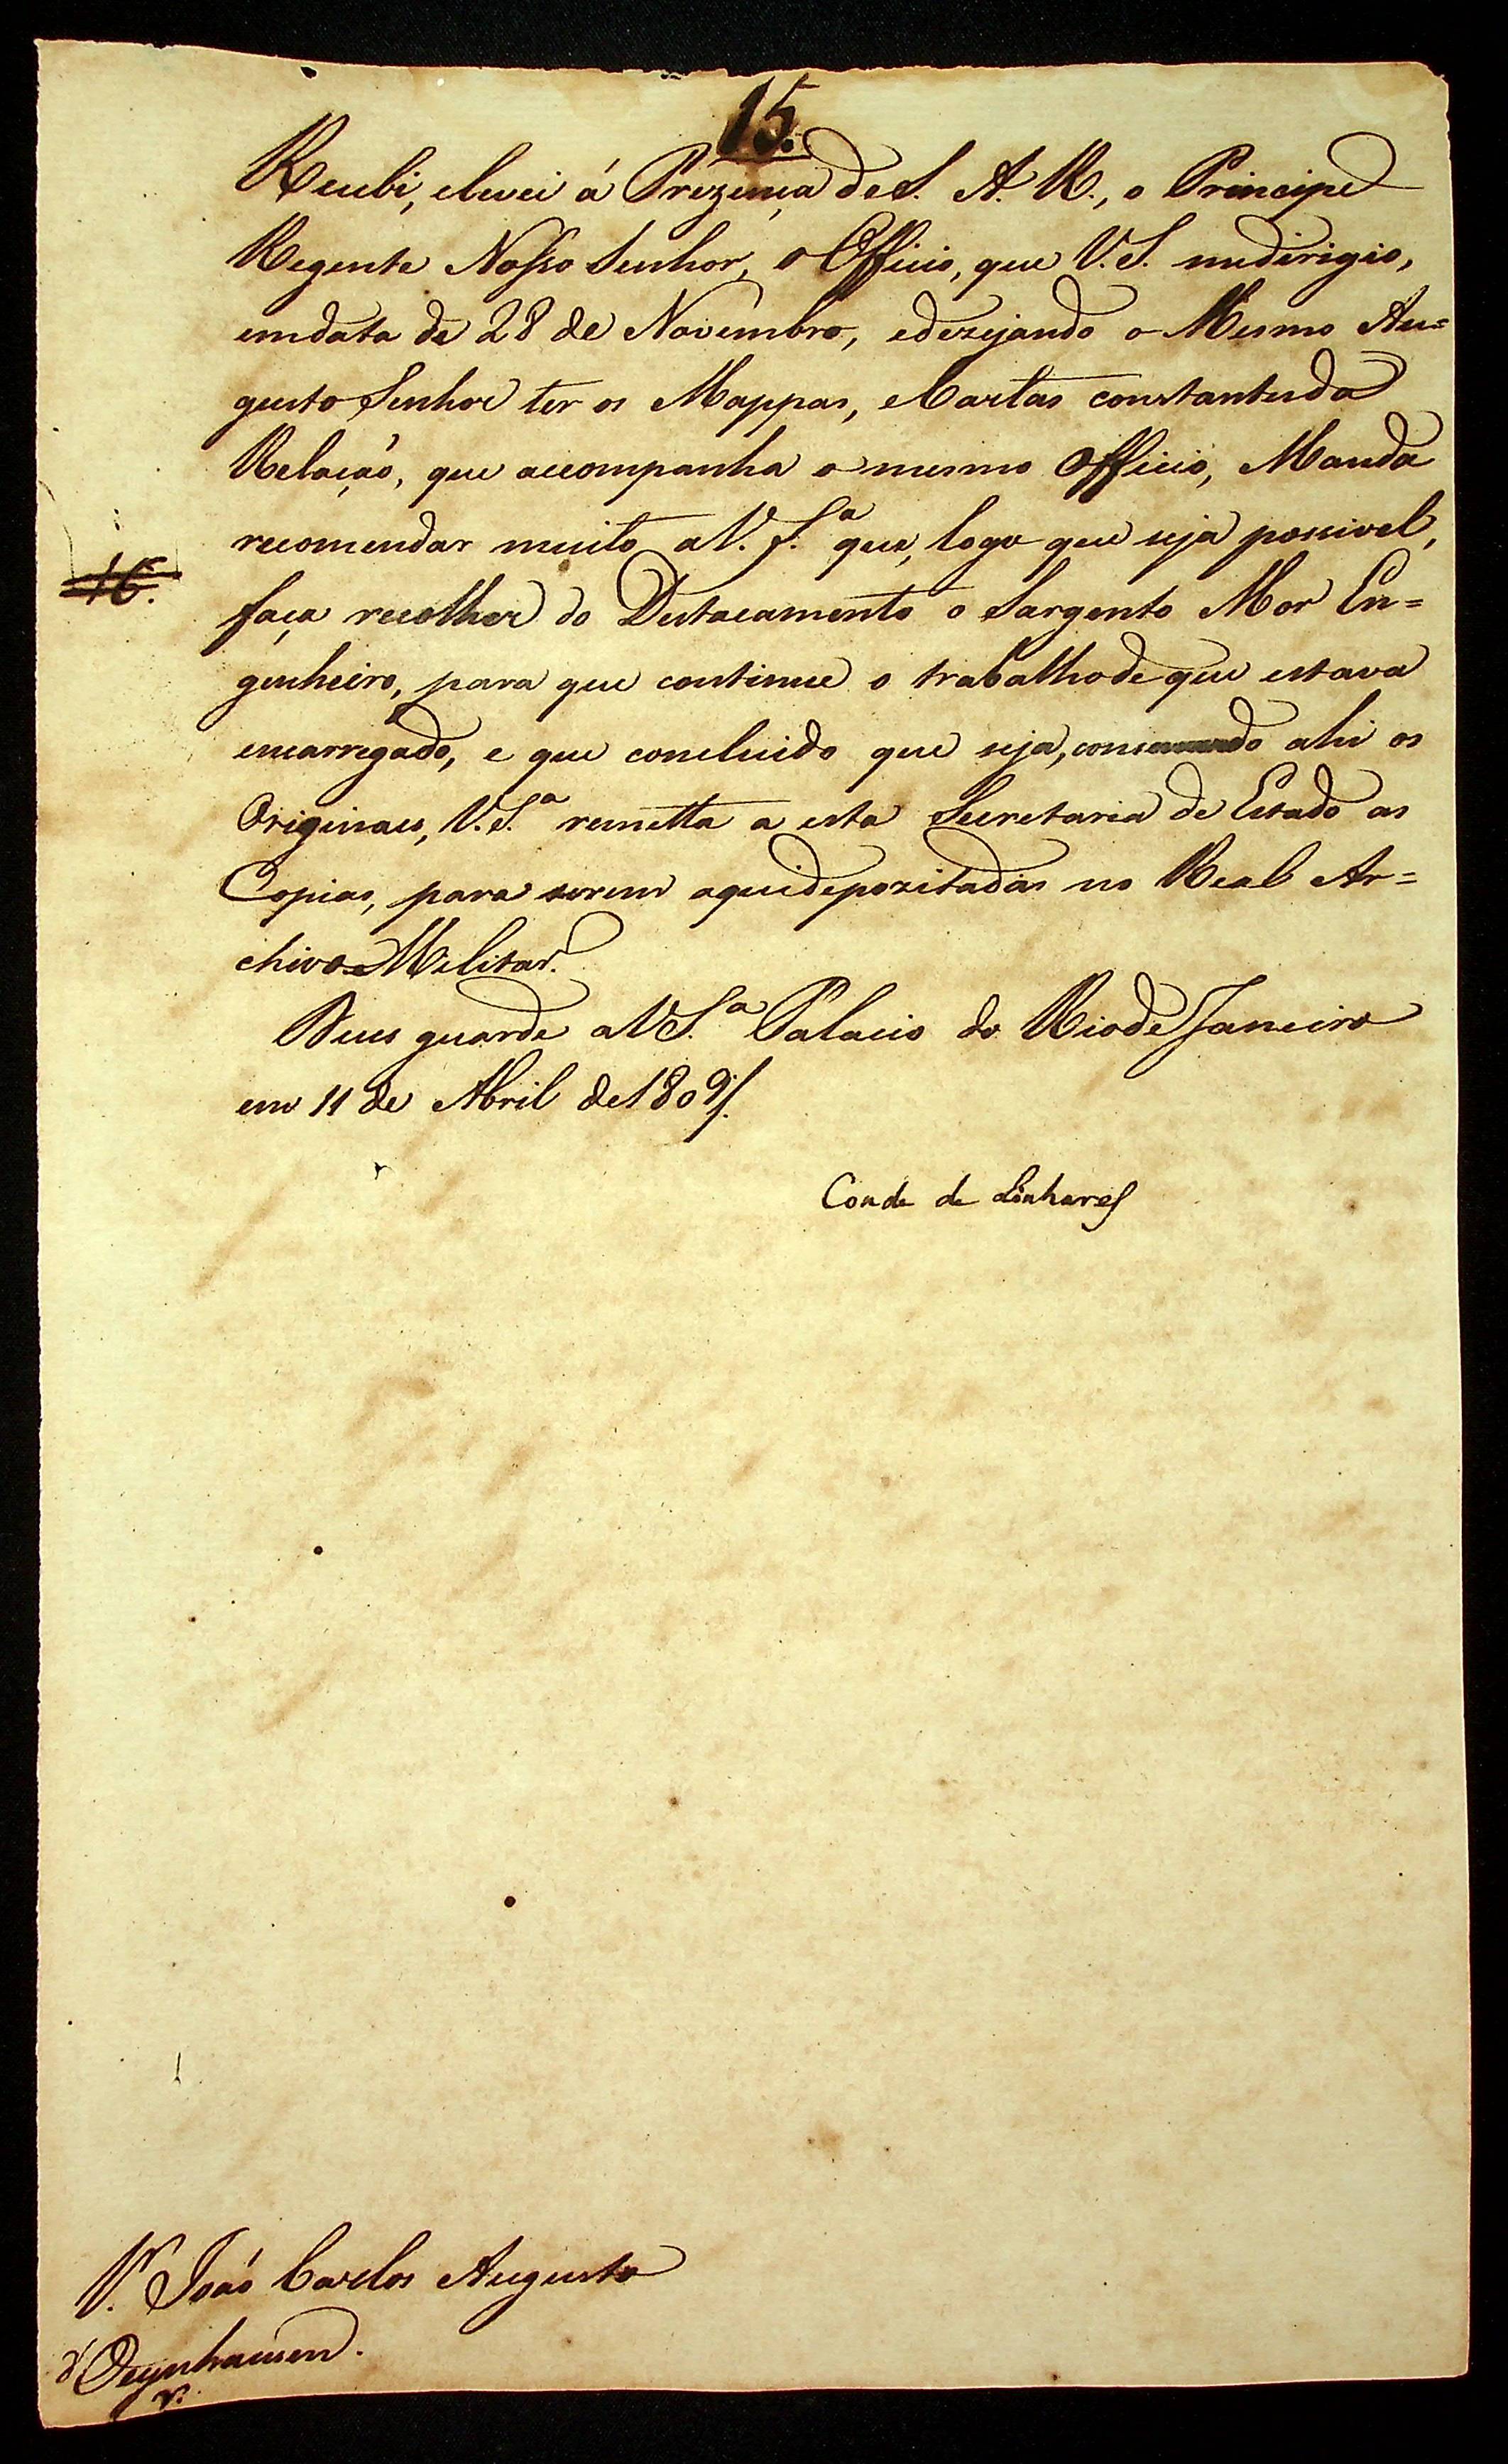 15.
Recebi, elevei á Prezença de S. A. R., o Principe
Regente Nosso Senhor, o Officio, que V. S. medirigio,
emdata de 28 de Novembro, edezejando o Mesmo Au=
gusto Senhor ter os Mappas, eCartas constantesda
Relação, que accompanha o mesmo Officio, Manda
recomendar muito aV. S.ª que, logo que seja possivel,
16.
faça recolher do Destacamento o Sargento Mor En=
genheiro, para que continue o trabalhode que estava
encarregado, e que concluido que seja, conservando ahi os
Originaes, V. S.ª remetta a esta Secretaria de Estado as
Copias, para serem aquidepozitadas no Real Ar=
chivo Militar.
Deos guarde aVS.ª Palacio do Riode Janeiro
em 11 de Abril de 1809/.
Conde de Linhares
João Carlos Augusto
d'Oeynhausen.